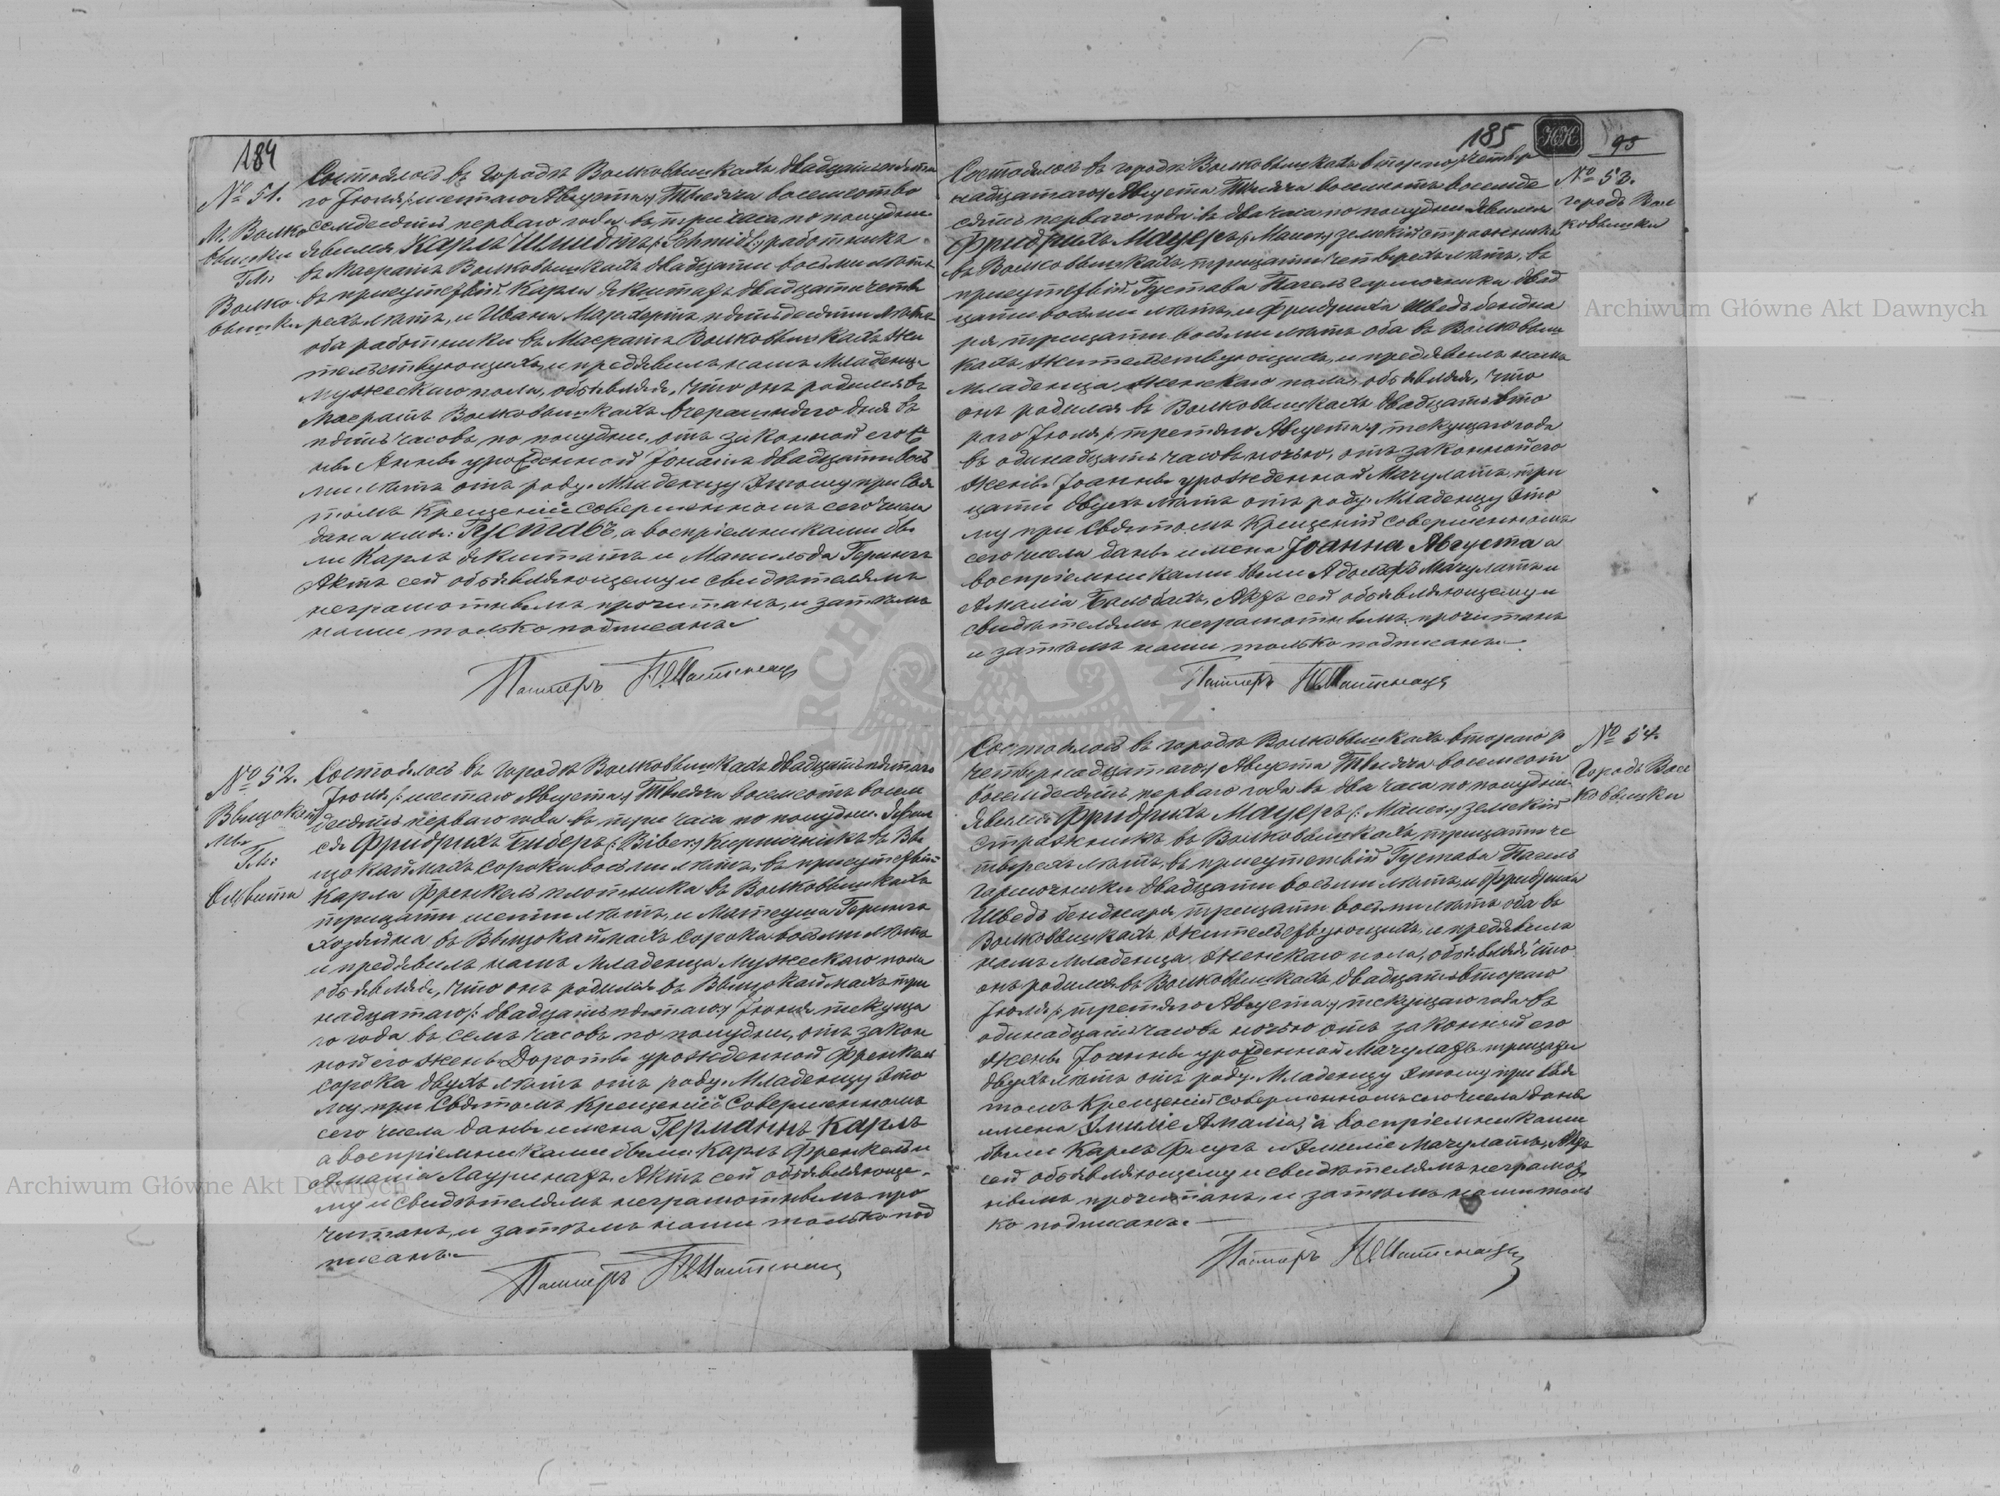 184
№ 51.
М. Волко
вышки
Гм:
Волко-
вышки
Состоялось въ городѣ Волковышкахъ двадцать пята
го Іюля /: шестаго Августа :/ Тысяча восемьсотъ во
семдесятъ перваго года въ три часа по полудни
явился Карлъ Шмидтъ /: Schmidt :/ работникъ
въ Маёратѣ Волковышкахъ двадцати восьми лѣтъ
въ присутствіи Карла Экштатъ двадцати четы
рехъ лѣтъ, и Ивана пятьдесяти лѣтъ
оба работники въ Маёратѣ Волковышкахъ жи
тельствующихъ, и предъявилъ намъ Младенца
мужескаго пола, объявляя, что онъ родился въ
Маёратѣ Волковышкахъ вчерашняго дня въ
пять часовъ по полудни, отъ законной его же
ны Анны урожденной Іонатъ двадцати вось
ми лѣтъ отъ роду. Младенцу этому при Свя
томъ Крещеніи совершенномъ сего числа
дано имя: Густавъ, а воспріемниками бы
ли Карлъ Экштатъ и Матильда Герингъ
Актъ сей объявляющему и свидѣтелямъ
неграмотнымъ прочитанъ, и затѣмъ
нами только подписанъ.
Пасторъ
№ 52.
Выщокай
мы
Гм:
Олвита
Состоялось въ городѣ Волковышкахъ двадцать пятаго
Іюля /: шестаго Августа :/ Тысяча восемьсотъ восем
десятъ перваго года въ три часа по полудни. Явил
ся Фридрихъ Биберъ /: Biber :/ Кирпичникъ въ Вы
щокаймахъ сорока восьми лѣтъ, въ присутствіи
Карла Френкель плотника въ Волковышкахъ
тридцати шести лѣтъ, и Матеуша Герингъ
хозяина въ Выщокаймахъ сорока восьми лѣтъ
и предъявилъ намъ Младенца мужескаго пола
объявляя, что онъ родился въ Выщокаймахъ три
надцатаго /: двадцать пятаго :/ Іюня текуща
го года въ семь часовъ по полудни, отъ закон
ной его жены Доротеи урожденной Френкель
сорока двухъ лѣтъ отъ роду. Младенцу это
му при Святомъ Крещеніи совершенномъ
сего числа даны имена Германнъ Карлъ
а воспріемниками были: Карлъ Френкель и
Амалія Лауринатъ. Актъ сей объявляюще-
му и свидѣтелямъ неграмотнымъ про
читанъ, и затѣмъ нами только под
писанъ.
Пасторъ
185
НК
95
№ 53.
городъ Вол
ковышки
Состоялось въ городѣ Волковышкахъ втораго /: четыр
надцатаго :/ Августа Тысяча восемьсотъ восемьде
сятъ перваго года въ два часа по полудни явился
Фридрихъ Мауеръ /: :/ земскій стражникъ
въ Волковышкахъ тридцати четырехъ лѣтъ, въ
присутствіи Густава Нагель двад
цати восьми лѣтъ, и Фридриха Шведъ бендна
ря тридцати восьми лѣтъ оба въ Волковыш
кахъ жительствующихъ, и предъявилъ намъ
младенца женскаго пола, объявляя, что
онъ родился въ Волковышкахъ двадцать вто
раго Іюля /: третяго Августа :/ текущаго года
въ одинадцать часовъ ночью, отъ законной его
жены Іоанны урожденной Мачулатъ, три
цати двухъ лѣтъ отъ роду. Младенцу это
му при Святомъ Крещеніи совершенномъ
сего числа даны имена Іоанна Августа а
воспріемниками были Адольфъ Мачулатъ и
Амалія Актъ сей объявляющему и
свидѣтелямъ неграмотнымъ прочитанъ
и затѣмъ нами только подписанъ.
Пасторъ
№ 54.
Городъ Вол
ковышки
Состоялось въ городѣ Волковышкахъ втораго /:
четырнадцатаго :/ Августа Тысяча восемьсотъ
восемдесятъ перваго года въ два часа по полудни
явился Фридрихъ Мауеръ /: :/ земскій
стражникъ въ Волковышкахъ тридцати че
тырехъ лѣтъ, въ присутствіи Густава Нагель
двадцати восьми лѣтъ, и Фридриха
Шведъ бенднаря, тридцати восьми лѣтъ оба въ
Волковышкахъ жительствующихъ, и предъявилъ
намъ младенца женскаго пола, объявляя, что
онъ родился въ Волковышкахъ двадцать втораго
Іюля /: третяго Августа :/ текущаго года въ
одинадцать часовъ ночью отъ законной его
жены Іоанны урожденной Мачулатъ тридцати
двухъ лѣтъ отъ роду. Младенцу этому при Свя
томъ Крещеніи совершенномъ сего числа даны
имена Эмиліе Амалія, а воспріемниками
были Карлъ и Эмиліе Мачулатъ, Актъ
сей объявляющему и свидѣтелямъ неграмот
нымъ прочитанъ, и затѣмъ нами толь
ко подписанъ.
Пасторъ
Archiwum Główne Akt Dawnych
Archiwum Główne Akt Dawnych